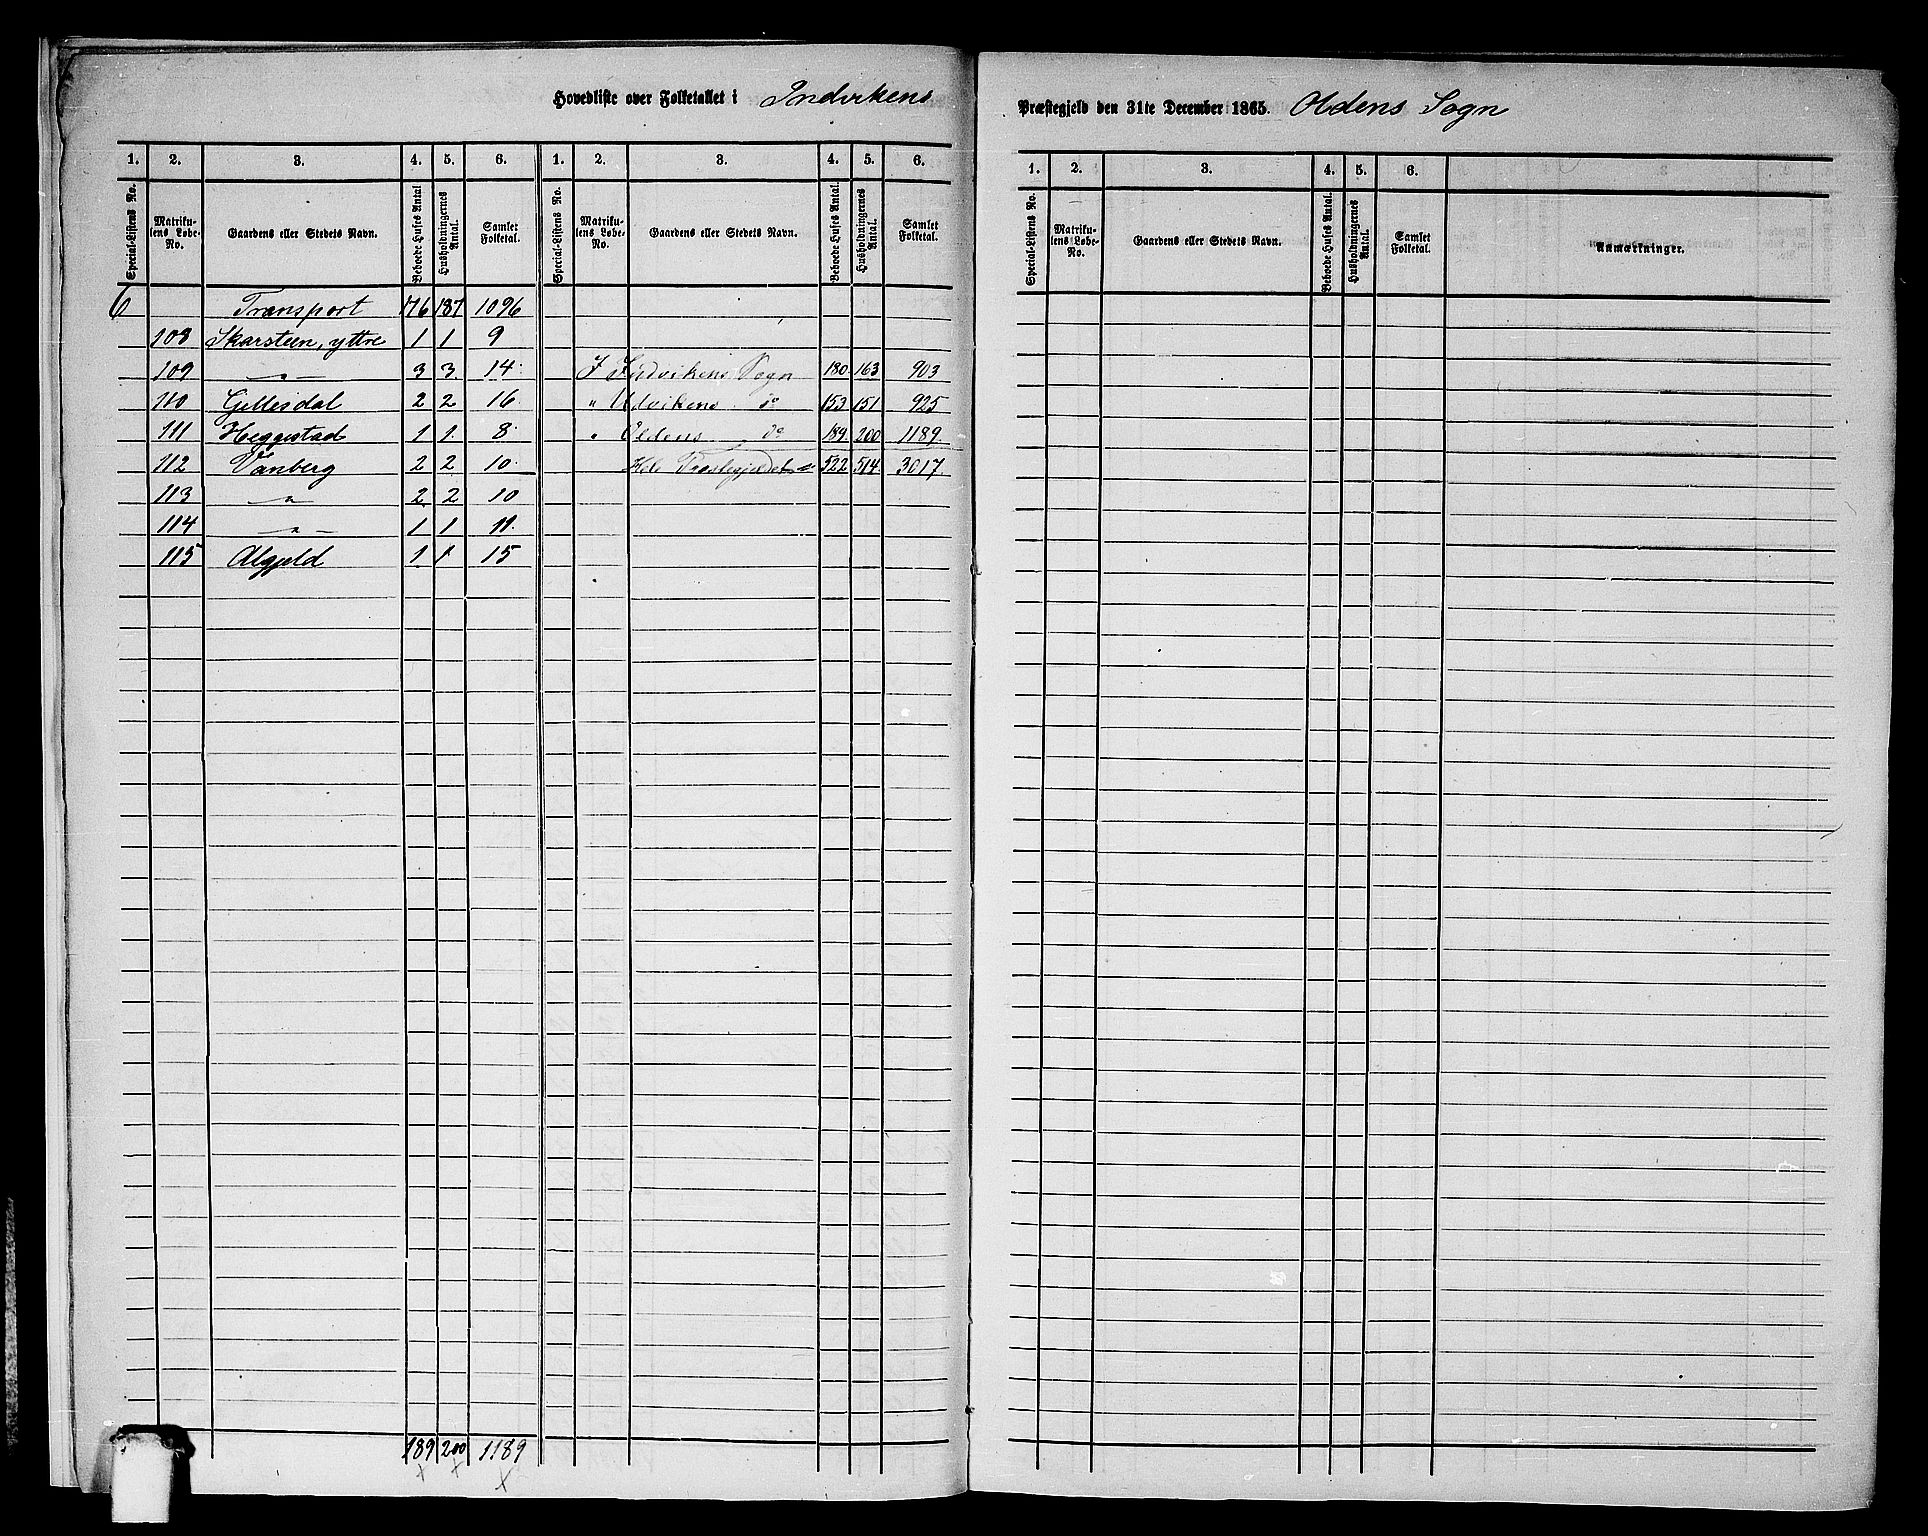 Hovedliste over Folketallet i Indvikens Præstegjeld den 31te December 1865. Oldens Sogn
1. 2. 3. 4. 5. 6. 1. 2. 3. 4. 5. 6.
Special-Listens No. Matrikulens Løbe-No. Gaardens eller Stedets Navn. Beboede Huses Antal Husholdningernes Antal. Samlet Folketal. Special-Listens No. Matrikulens Løbe-No. Gaardens eller Stedets Navn. Beboede Huses Antal. Husholdningernes Antal. Samlet Folketal.
6 Transport 176 187 1096
108 Skarsteen, yttre 1 1 9
109 —"— 3 3. 14.
110 Gillesdal 2 2 16.
111 Heggestad 1 1. 8.
112 Vanberg 2 2 10.
113 —"— 2 2 10
114 —"— 1 1 11.
115 Algjeld 1 1 15
189 200 1189
I Indvikens Sogn 180 163 903
" Udvikens do 153 151 925
" Oldens do 189. 200 1189.
Hele Præstegjeldet = 522 514 3017.
1. 2. 3. 4. 5. 6.
Special-Listens No. Matrikulens Løbe-No. Gaardens eller Stedets Navn. Beboede Huses Antal. Husholdningernes Antal. Samlet Folketal. Anmærkninger.